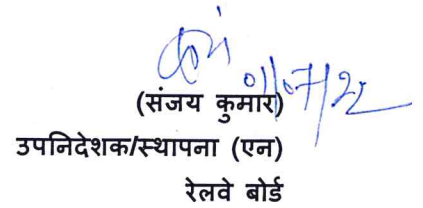 01/07/22
(संजय कुमार)
उपनिदेशक/स्थापना (एन)
रेलवे बोर्ड